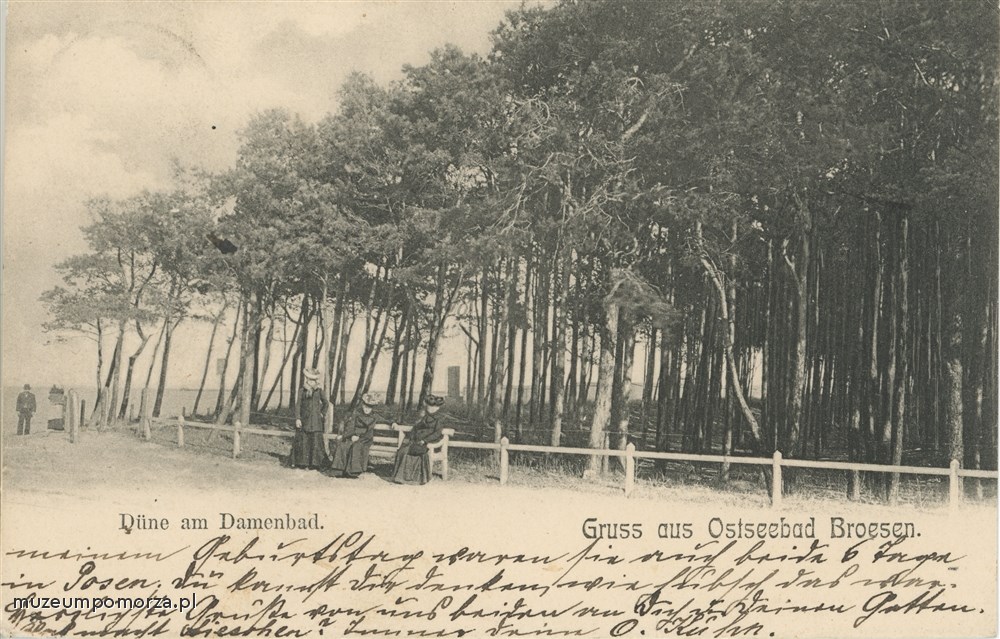 Düne am Damenbad.
Gruss aus Ostseebad Broesen.
meinem Geburtstag waren sie auch beide 6 Tage
in Posen. Du kannst Dir denken, wie hübsch das war.
Herzlichste Grüße von uns beiden an Dich u. Deinen Gatten.
muzeumpomorza.pl
Was macht Lieschen? Immer deine O. Kühn.